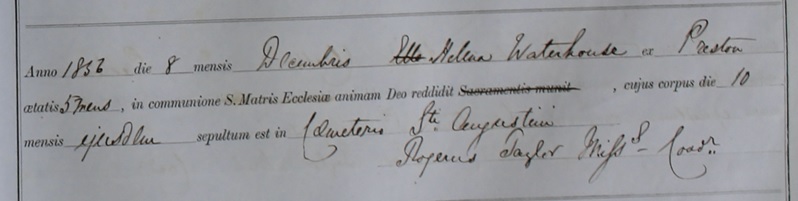 Anno 1856 die 8 mensis Decembris Helena Waterhouse ex Preston
ætatis 5 mens, in communione S. Matris Ecclesiæ animam Deo reddidit Sacramentis munit , cujus corpus die 10
mensis ejusdem sepultum est in Cæmeterio Sti Augustini
Rogerus Taylor Misss Coadr